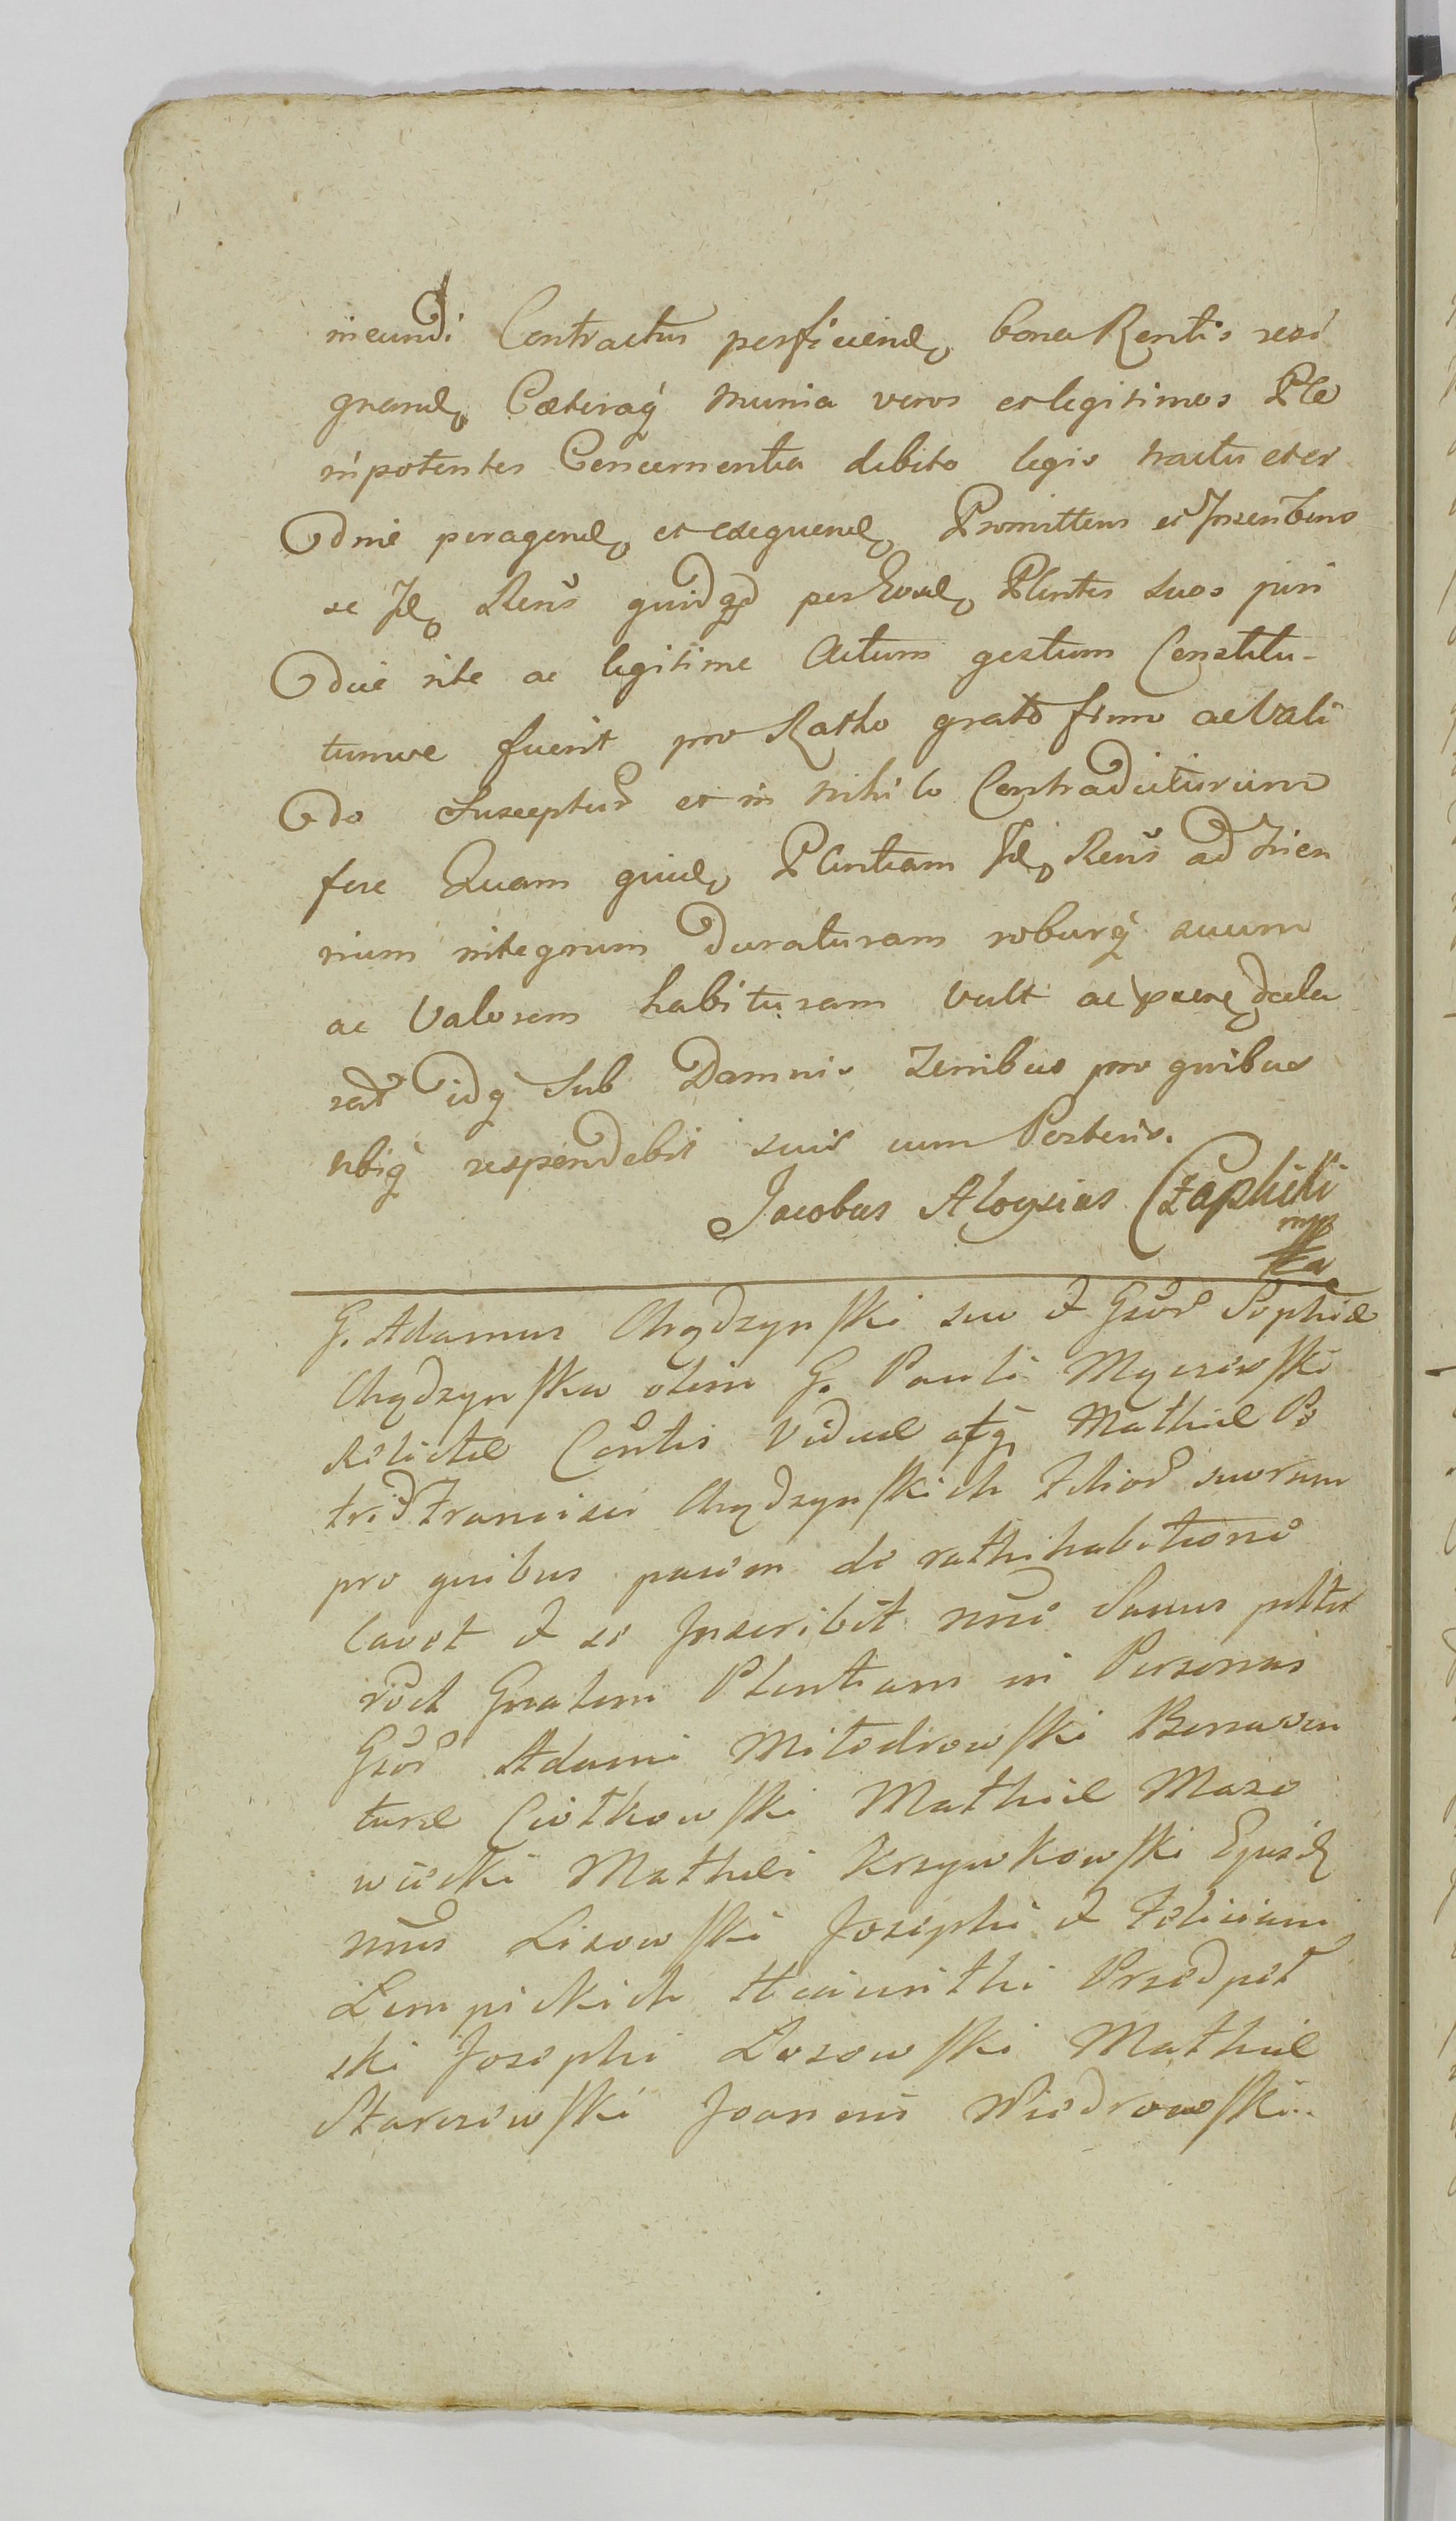 ineundi Contractus perficiend bona Rentis resi
gnand Cæteraq munia veros et legitimos Ple
nipotentes Concernentia debito legis tractu et or
dine peragend et exequend Promittens et Inscribens
se Id Rens quidqd per Eosd Plentes suos juri
dice rite ac legitime Actum gestum Constitu-
tumve fuerit pro Ratho grato firmo ac Vali
do Suscepturū et in nihilo Contradicturum
fore Quam quid Plentiam Id Rens ad Trien
nium integrum duraturam roburq suum
ac Valorem habituram vult ac decla
rat idq Sub Damnis Terribus pro quibus
ubiq respondebit suis cum Posteris.
Jacobus Aloysius Czaplicki
mpp
G. Adamus Chądzynski suo et Gsor Sophiæ
Chądzynska olim G. Pauli Mycicwski
Relictæ Contis Viduæ atq Mathiæ Pe
tri Francisci Chądzynskich Filior suorum
pro quibus pacem de rathihabitione
Cavet et se Inscribit nne Sanus
Gnalem Plentiam in Personas
Gsor Adami Milodrowski Bonaven
turæ Ciotkowski Mathiæ Mazo
wiecki Mathæi Krzywkowski Ejusd
nnis Lisowski Josephi et Feliciani
Lempickich Hiacinthi Przedpeł
ski Josephi Lasowski Mathiæ
Starczewski Joannis Niedrowski..